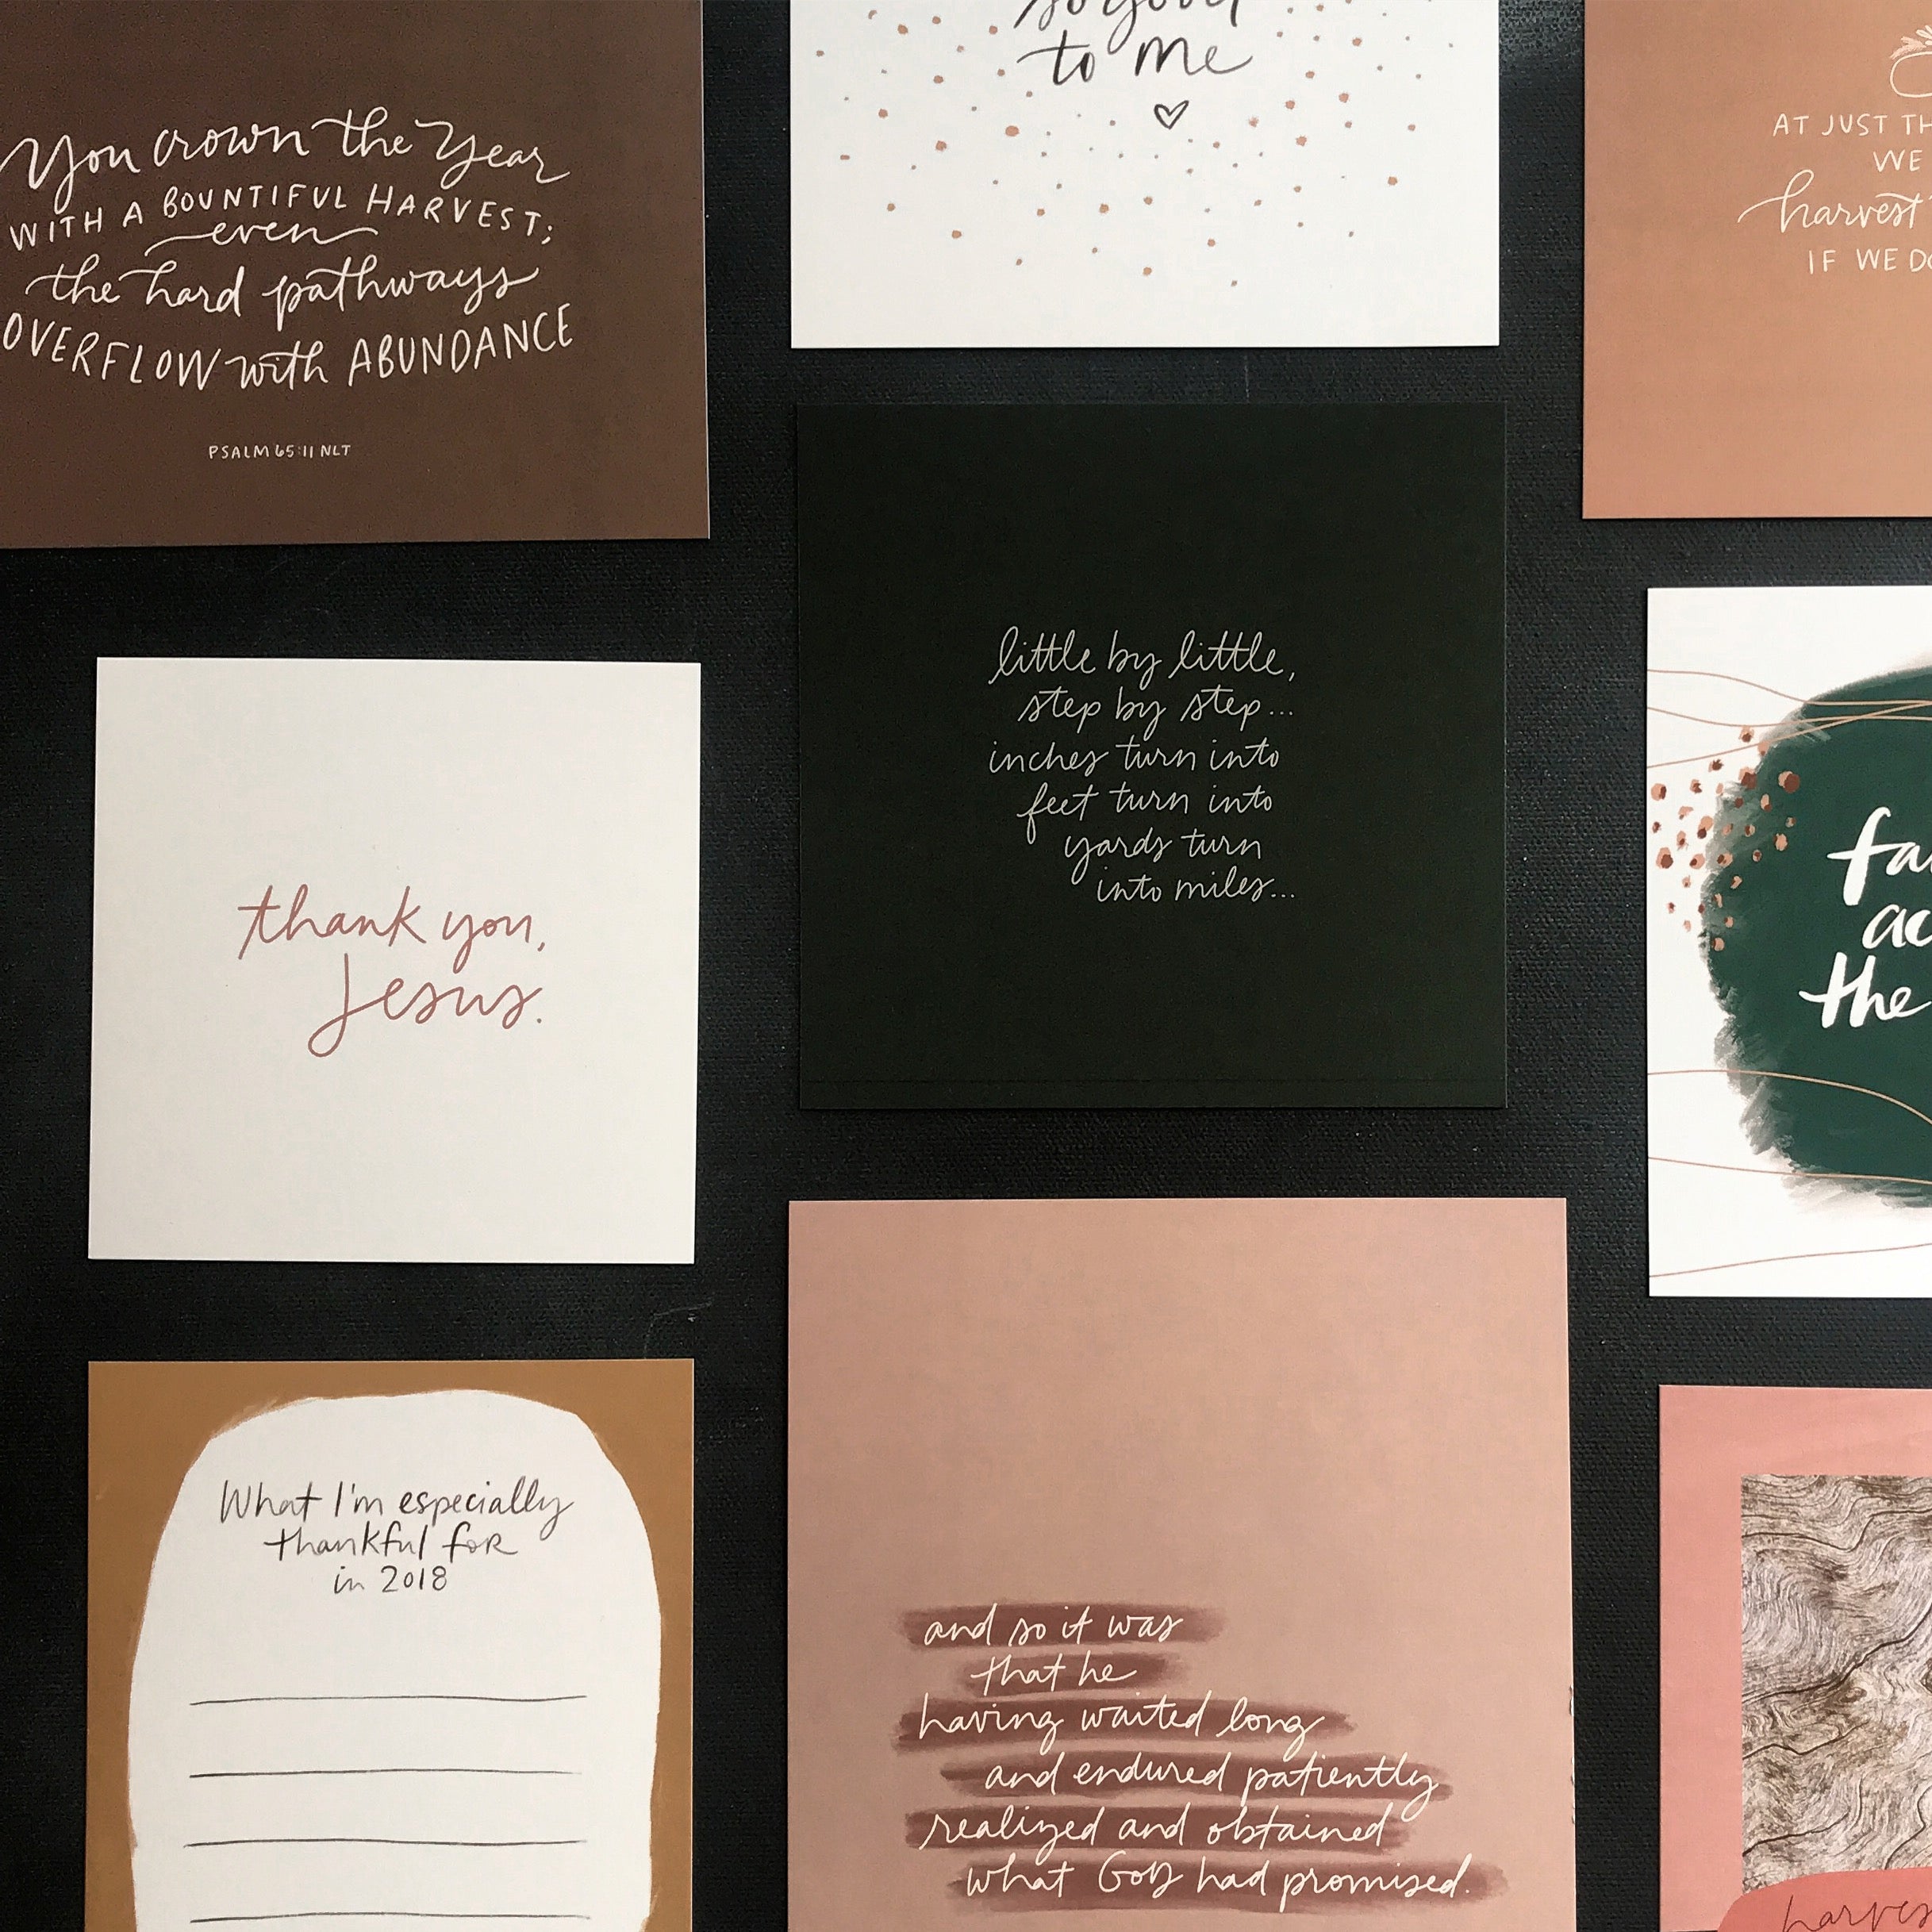 You crown the Year
WITH A BOUNTIFUL HARVEST;
even
the hard pathways
OVERFLOW with ABUNDANCE
PSALM 65:11 NLT
so good
to me
AT JUST
WE
harvest
IF WE
little by little,
step by step...
inches turn into
feet turn into
yards turn
into miles...
thank you,
Jesus.
the
What I'm especially
thankful for
in 2018
and so it was
that he
having waited long
and endured patiently
realized and obtained
what GOD had promised.